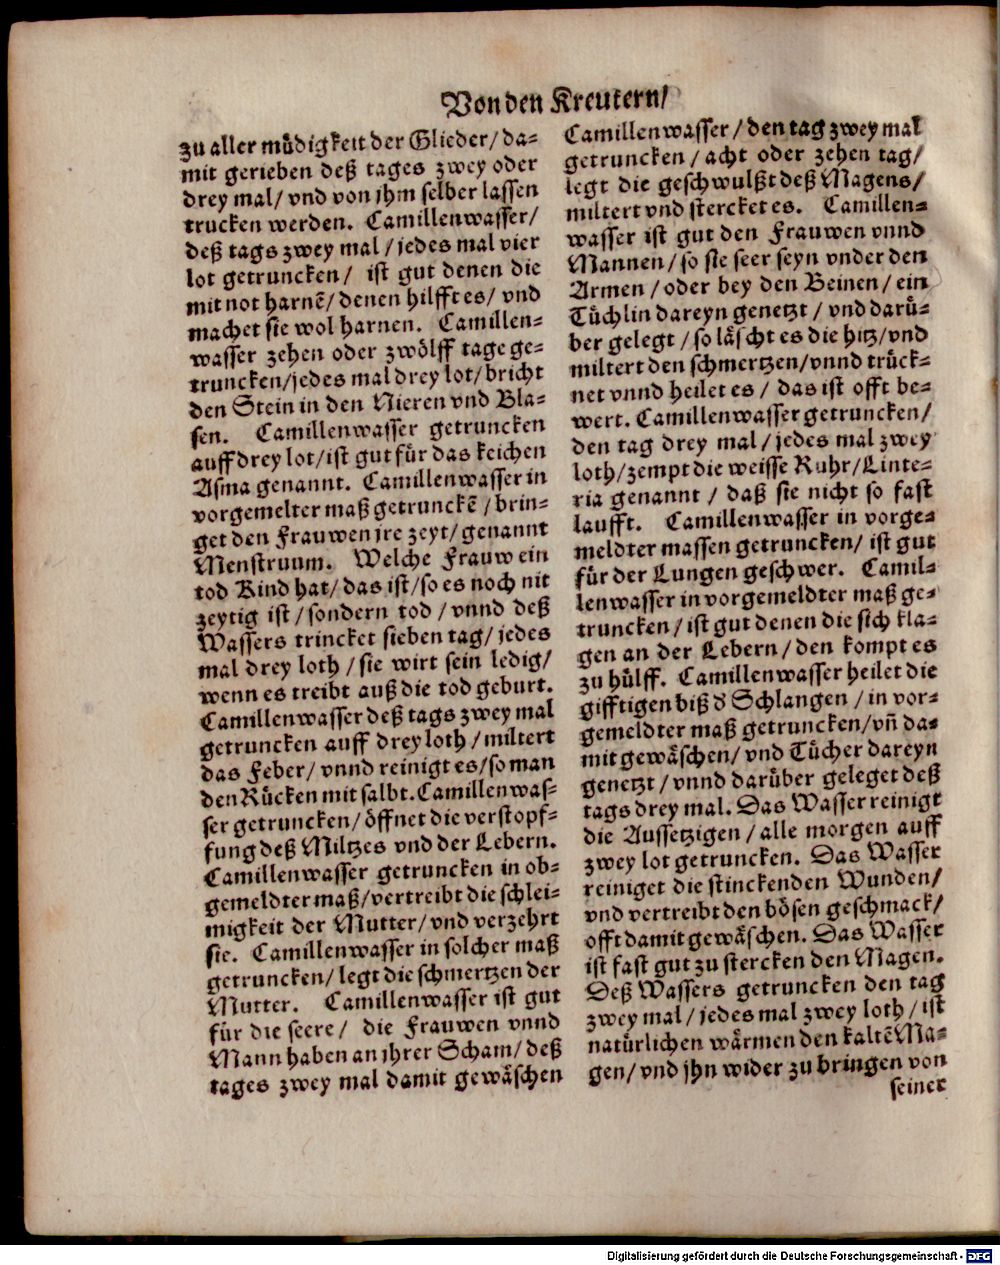 Von den Kreutern/
zu aller müdigkeit der Glieder/ da-
mit gerieben deß tages zwey oder
drey mal/ vnd von jhm selber lassen
trucken werden. Camillenwasser/
deß tags zwey mal / jedes mal vier
lot getruncken/ ist gut denen die
mit not harnē/ denen hilfft es/ vnd
machet sie wol harnen. Camillen-
wasser zehen oder zwölff tage ge-
truncken/ jedes mal drey lot/ bricht
den Stein in den Nieren vnd Bla-
sen. Camillenwasser getruncken
auff drey lot/ ist gut für das keichen
Asma genannt. Camillenwasser in
vorgemelter maß getrunckē / brin-
get den Frauwen jre zeyt/ genannt
Menstruum. Welche Frauw ein
tod Kind hat/ das ist/ so es noch nit
zeytig ist/ sondern tod / vnnd deß
Wassers trincket sieben tag/ jedes
mal drey loth / sie wirt sein ledig/
wenn es treibt auß die tod geburt.
Camillenwasser deß tags zwey mal
getruncken auff drey loth / miltert
das Feber/ vnnd reinigt es/ so man
den Rücken mit salbt. Camillenwas-
ser getruncken/ öffnet die verstopf-
fung deß Miltzes vnd der Lebern.
Camillenwasser getruncken in ob-
gemeldter maß/ vertreibt die schlei-
migkeit der Mutter/ vnd verzehrt
sie. Camillenwasser in solcher maß
getruncken/ legt die schmertzen der
Mutter. Camillenwasser ist gut
für die seere/ die Frauwen vnnd
Mann haben an jhrer Scham/ deß
tages zwey mal damit gewäschen
Camillenwasser / den tag zwey mal
getruncken / acht oder zehen tag/
legt die geschwulßt deß Magens/
miltert vnd stercket es. Camillen-
wasser ist gut den Frauwen vnnd
Mannen/ so sie seer seyn vnder den
Armen / oder bey den Beinen / ein
Tüchlin dareyn genetzt / vnd darü-
ber gelegt / so läscht es die hitz/ vnd
miltert den schmertzen/ vnnd trück-
net vnnd heilet es / das ist offt be-
wert. Camillenwasser getruncken/
den tag drey mal / jedes mal zwey
loth/ zempt die weisse Ruhr/ Linte-
ria genannt / daß sie nicht so fast
laufft. Camillenwasser in vorge-
meldter massen getruncken/ ist gut
für der Lungen geschwer. Camil-
lenwasser in vorgemeldter maß ge-
truncken/ ist gut denen die sich kla-
gen an der Lebern / den kompt es
zu hülff. Camillenwasser heilet die
gifftigen biß d̕ Schlangen / in vor-
gemeldter maß getruncken/ vñ da-
mit gewäschen/ vnd Tücher dareyn
genetzt / vnnd darüber geleget deß
tags drey mal. Das Wasser reinigt
die Aussetzigen / alle morgen auff
zwey lot getruncken. Das Wasser
reiniget die stinckenden Wunden/
vnd vertreibt den bösen geschmack/
offt damit gewäschen. Das Wasser
ist fast gut zu stercken den Magen.
Deß Wassers getruncken den tag
zwey mal / jedes mal zwey loth / ist
natürlichen wärmen den kaltē Ma-
gen/ vnd jhn wider zu bringen von
seiner
Digitalisierung gefördert durch die Deutsche Forschungsgemeinschaft - DFG